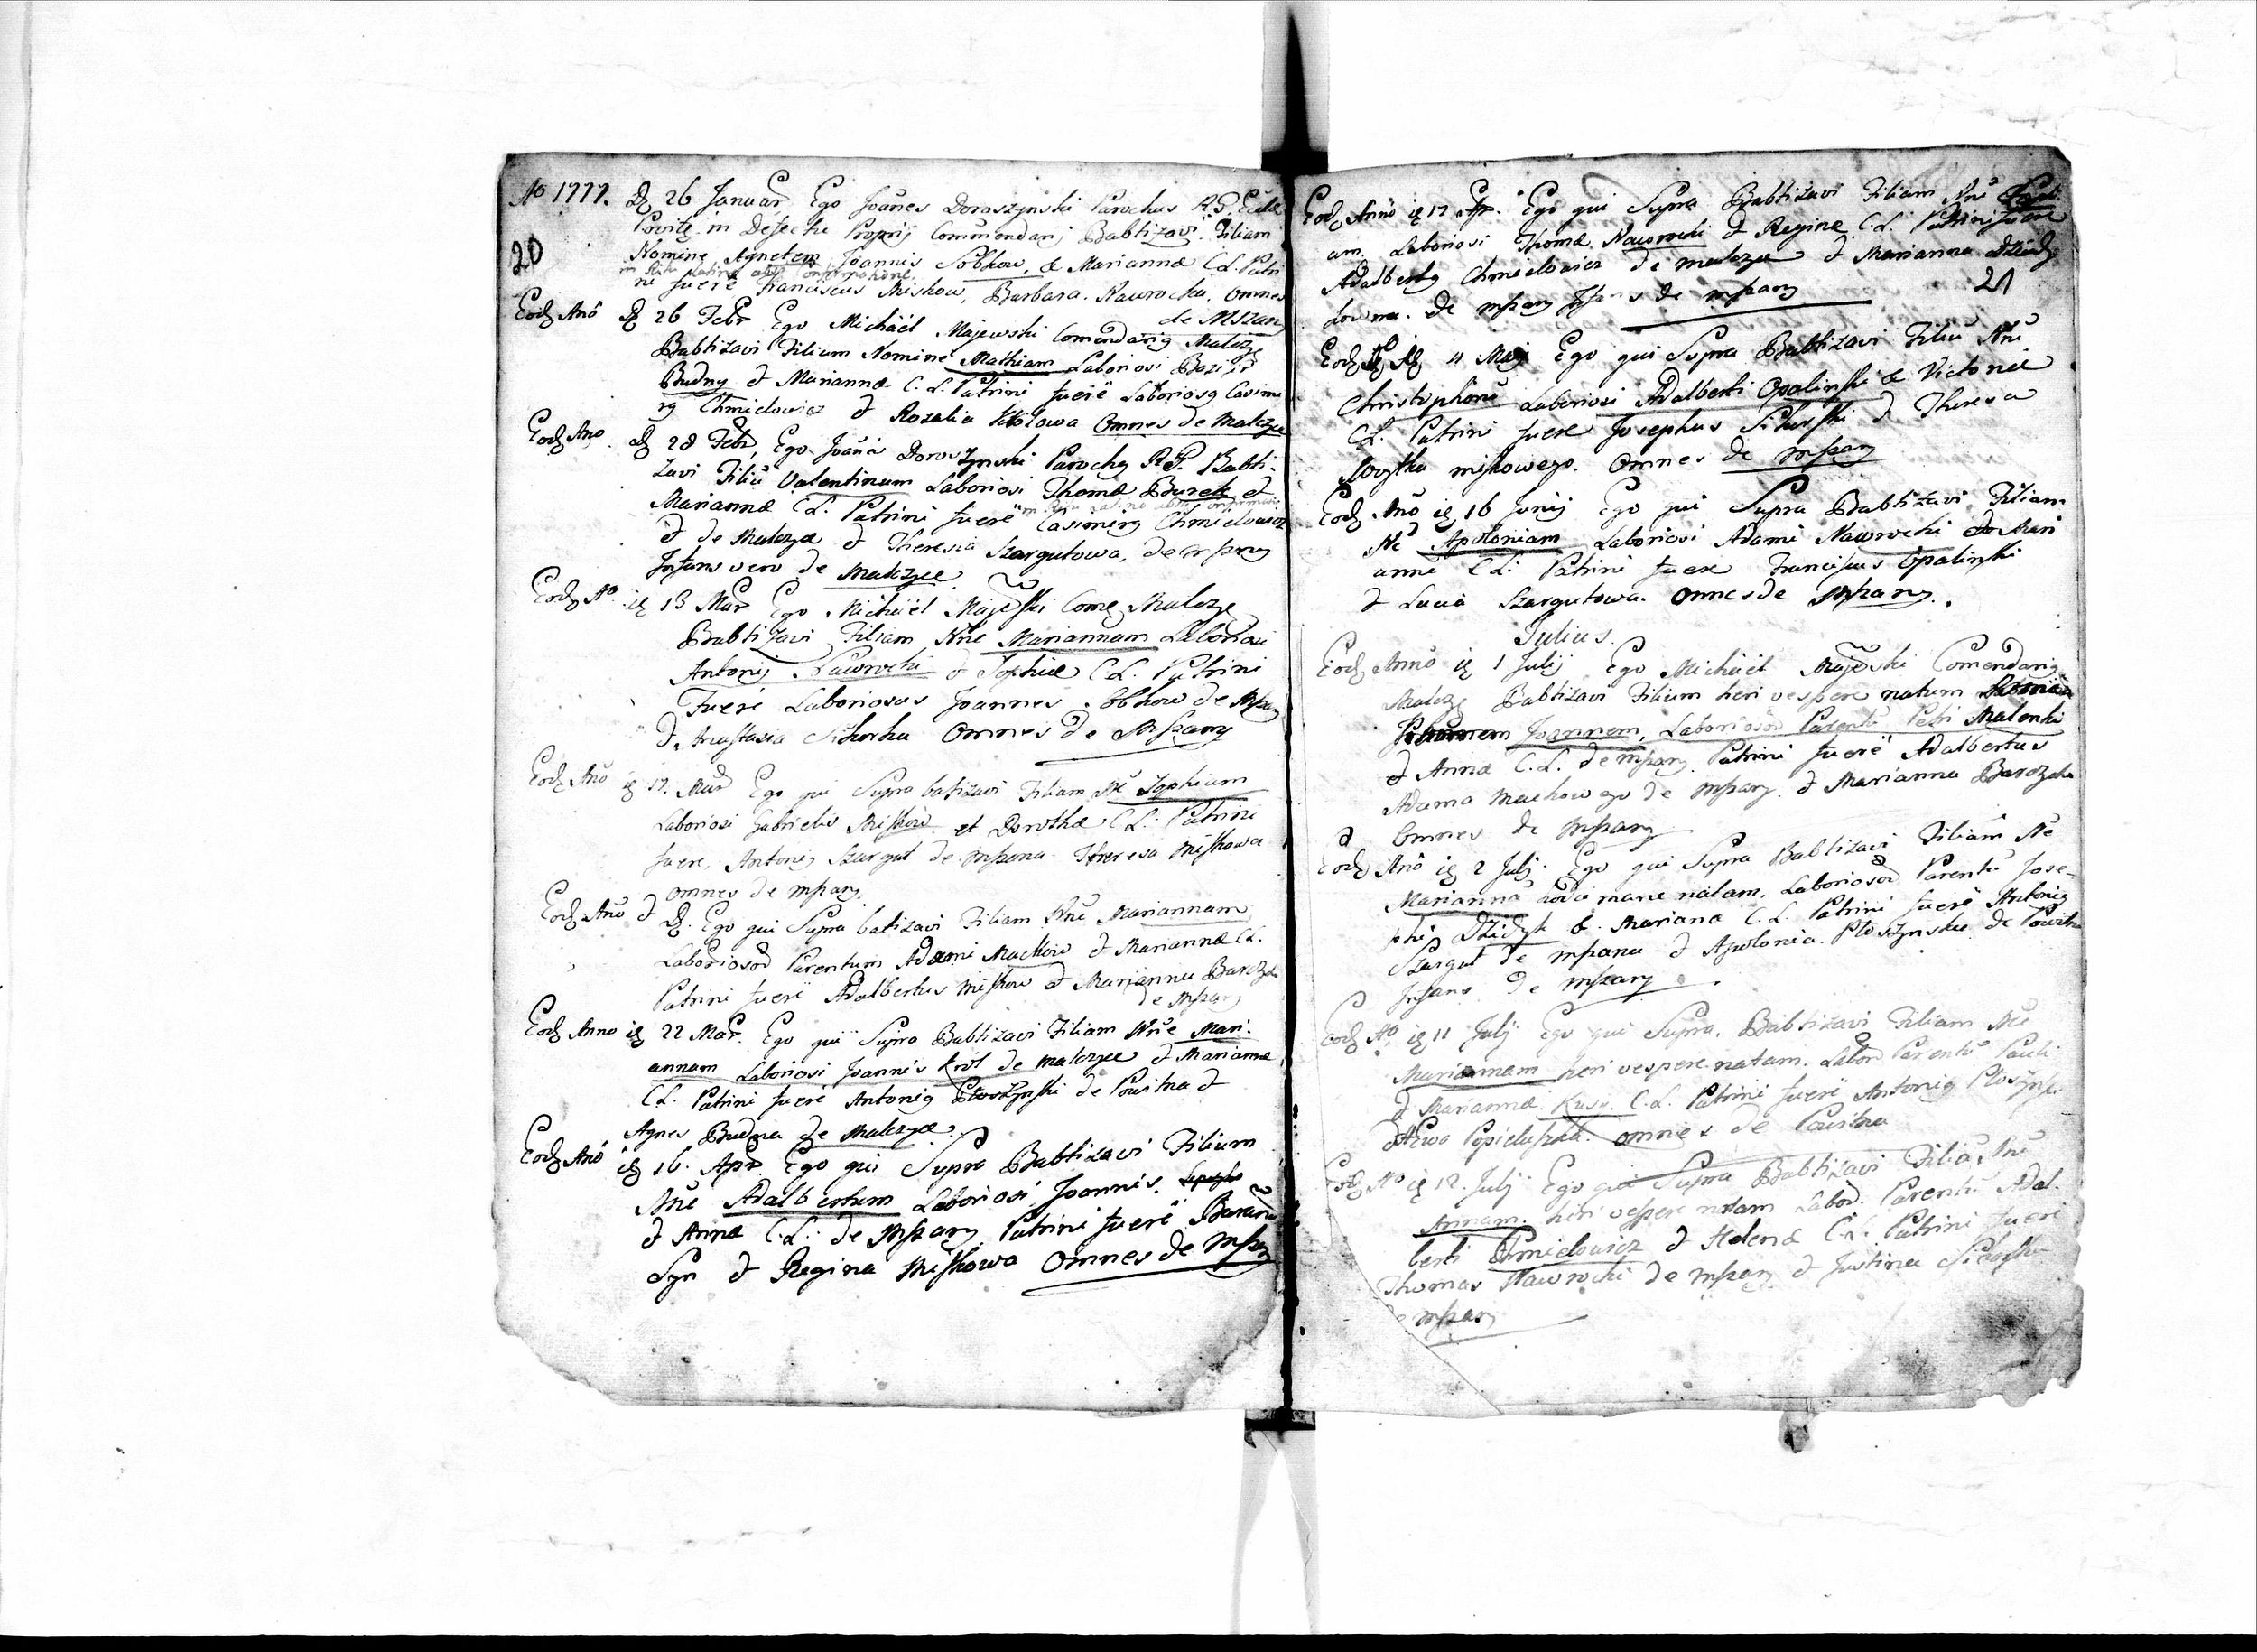 Ao 1777. D 26 Januar Ego Joañes Doroszynski Parochus R. G. Eccle
Powitę in defectu Proprij Commendarij Babtizavi Filiam
20
Nomine Agnetem Joannis Sobkow, & Mariannæ C. L. Patri
ni fuerē Franciscus Miskow, Barbara Nawrocka. Omnes
de Mszany
Eod Anō D 26 Febr Ego Michäel Majewski Comendariq Malczę
Babtizavi Filium Nomine Mathiam Laboriosi
Budny & Mariannæ C. L. Patrini fuerē Laboriosq Casimi
rq Chmielowicz & Rozalia Omnes de Malczyce
Eod Ano D 28 Febr, Ego Doroszynski Parochq R. G. Babti
zavi Filiū Valentinum Laboriosi Thomæ Burek &
Mariannæ C. L. Patrini fuerē Casimirq Chmielowicz
& de Malczyce & Theresia Szargutowa, de Mszany
Infans vero de Malczyce
Eod Ao iq 13 Mar Ego Michäel Majewski Come Malczę
Babtizavi Filiam Nne Mariannam Laboriosi
Antonij Nawrocki & Sophiæ C. L. Patrini
Fuerē Laboriosus Joannes Sobkow de Mszany
& Anastasia Sikorka Omnes de Mszany
Eod Anō iq 17. Mar Ego qui Supra batizavi Filiam Ne Zophiam
Laboriosi Gabrielis Miskow et Dorothæ C. L. Patrini
fuere Antonij Szargut de Mszana Theresa Miskowa
omnes de Mszany
Eod Anō & D. Ego qui Supra batizavi Filiam Nne Mariannam
Laboriosod Parentum Adami Mackow & Mariannæ C. L.
Patrini fuerē Adalbertus Miskow & Marianna
de Mszany
Eod Anno iq 22 Mar. Ego qui Supra Babtizavi Filiam Nne Mari
annam Laboriosi Joannis Krol de Malczyce & Mariannæ
C. L. Patrini fuerē Antoniq Ploszynski de Powitna &
Agnes Budna de Malczyce.
Eod Anō iq 16. Apr. Ego qui Supra Babtizavi Filium
Nne Adalbertum Laboriosi Joannis
& Annæ C. L. de Mszany Patrini fuerē
Syn & Regina Miskowa Omnes de Mszany
Eod Annō iq 17 Apr. Ego qui Supra Babtizavi Filiam Nnē
am. Laboriosi Thomæ Nawrocki & Reginæ C. L. Patrini fuere
Adalbertq Chmielowicz de Malczyce & Marianna Dziedz
21
Lowna. de Mszany Infans de Mszany
Eod D 4 Maij Ego qui Supra Babtizavi Filiū Nnē
Christophorū Laboriosi Adalberti Opalinski & Victoriæ
C. L. Patrini fuere Josephus Sikorski & Theresa
Woytka miskowego. Omnes de Mszany
Eod Anō iq 16 Junij Ego qui Supra Babtizavi Filiam
Ne Apoloniam Laboriosi Adami Nawrocki & Mari
annæ C. L. Patrini fuere Franciscus Opalinski
& Lucia Szargutowa. Omnes de Mszany.
Julius.
Eod Annō iq 1 Julij Ego Michäel Majewski Comendariq
Malczę Babtizavi Filium heri vespere natum
Joannem, Laboriosod Parentū Petri Malenki
& Annæ C. L. de Mszany. Patrini fuerē Adalbertus
Adama Mackowego de Mszany. & Marianna
Omnes de Mszany
Eod Anō iq 2 Julij. Ego qui Supra Babtizavi Filiam Ne
Marianna hodie mane natam. Laboriosod Parentū Jose-
phi Dzidyk & Mariana C. L. Patrini fuerē Antoniq
Szargut de Mszana & Apolonia Ploszynska de Powitna
Infans de Mszany.
Eod Ao iq 11 Julij Ego qui Supra. Babtizavi Filiam Nē
Mariannam heri vespere natam. Labod Parentū Pauli
& Mariannæ C. L. Patrini fuerē Antoniq
& Ewa Omnes de Powitna
Eod Ao iq 12. Julij Ego qui Supra Babtizavi Filiā Nnē
Annam. heri vespere natam Labod. Parentū Adal-
berti Chmielowicz & Helenæ C. L. Patrini fuerē
Thomas Nawrocki de Mszany & Justina
de Mszany